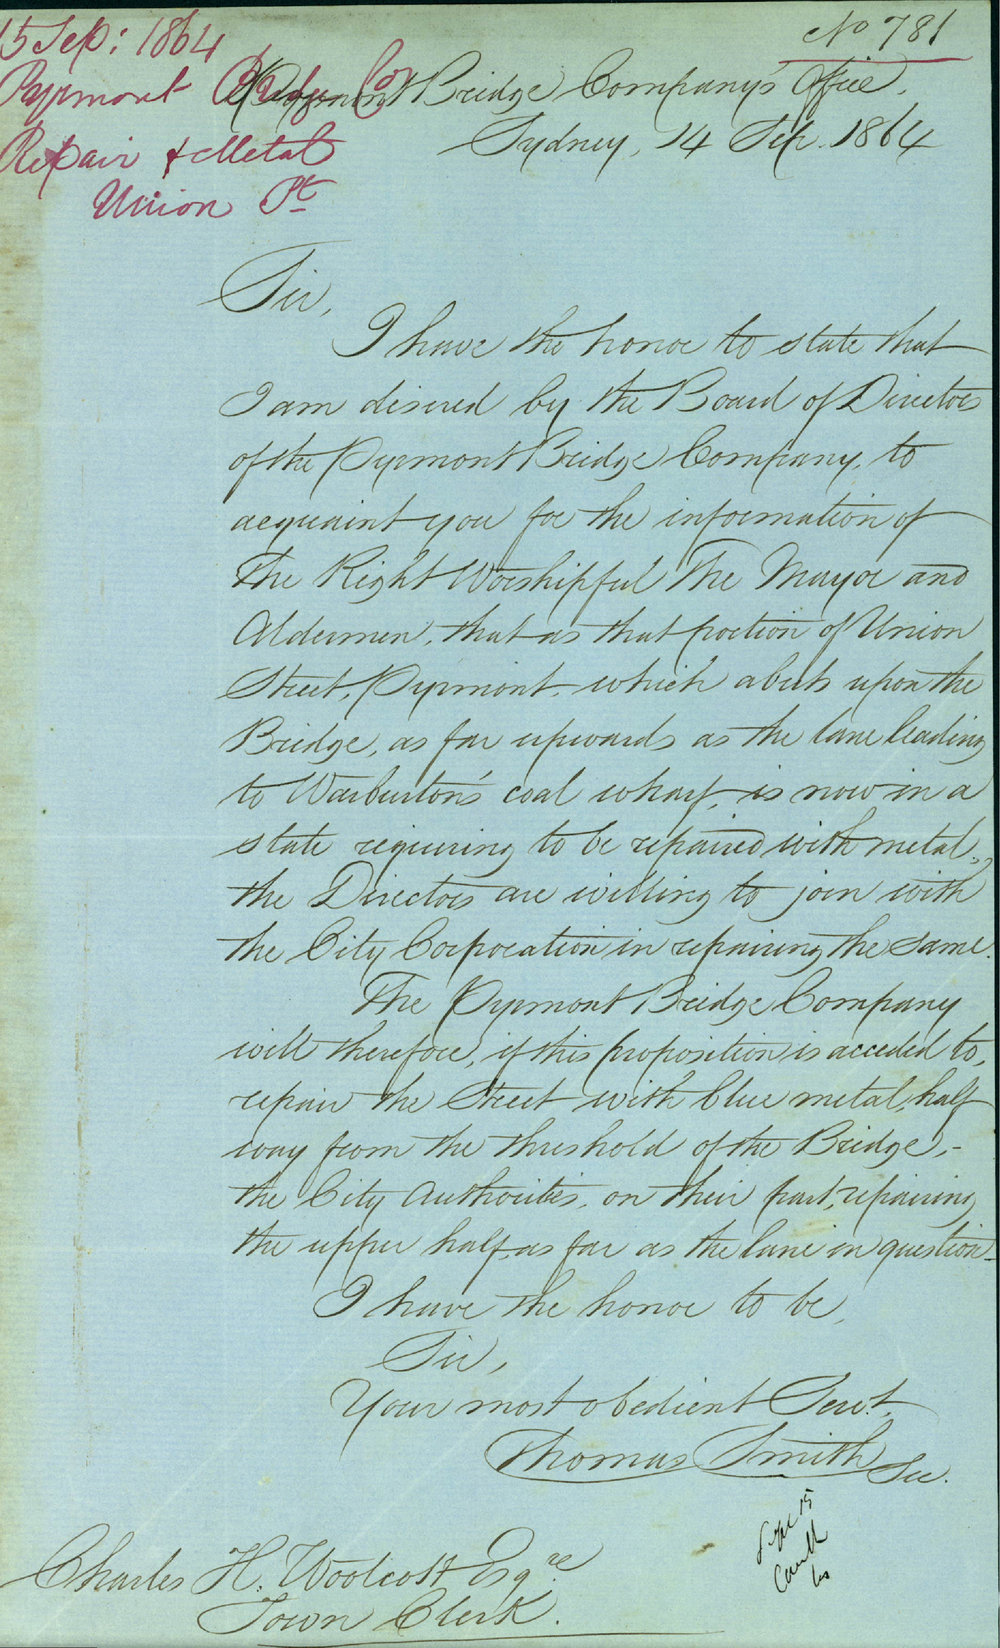 15 Sep: 1864
Pyrmont Bridge Coy
Repair & Metal
Union St
No 781
Pyrmont Bridge Company's Office,
Sydney, 14 Sep. 1864
Sir,
I have the honor to state that
I am desired by the Board of Directors
of the Pyrmont Bridge Company, to
acquaint you for the information of
The Right Worshipful The Mayor and
Aldermen, that as that portion of Union
Street, Pyrmont, which abuts upon the
Bridge, as far upwards as the lane leading
to Warburton's coal wharf, is now in a
state requiring to be repaired with metal,
the Directors are willing to join with
the City Corporation in repairing the same.
The Pyrmont Bridge Company
will therefore, if this proposition is acceded to,
repair the Street with blue metal, half
way from the threshold of the Bridge,-
the City Authorities, on their part, repairing
the upper half as far as the lane in question.
I have the honor to be,
Sir,
Your most obedient Servt.
Thomas Smith
Sec.
Sept 15
Charles H. Woolcott Esqre
Town Clerk.